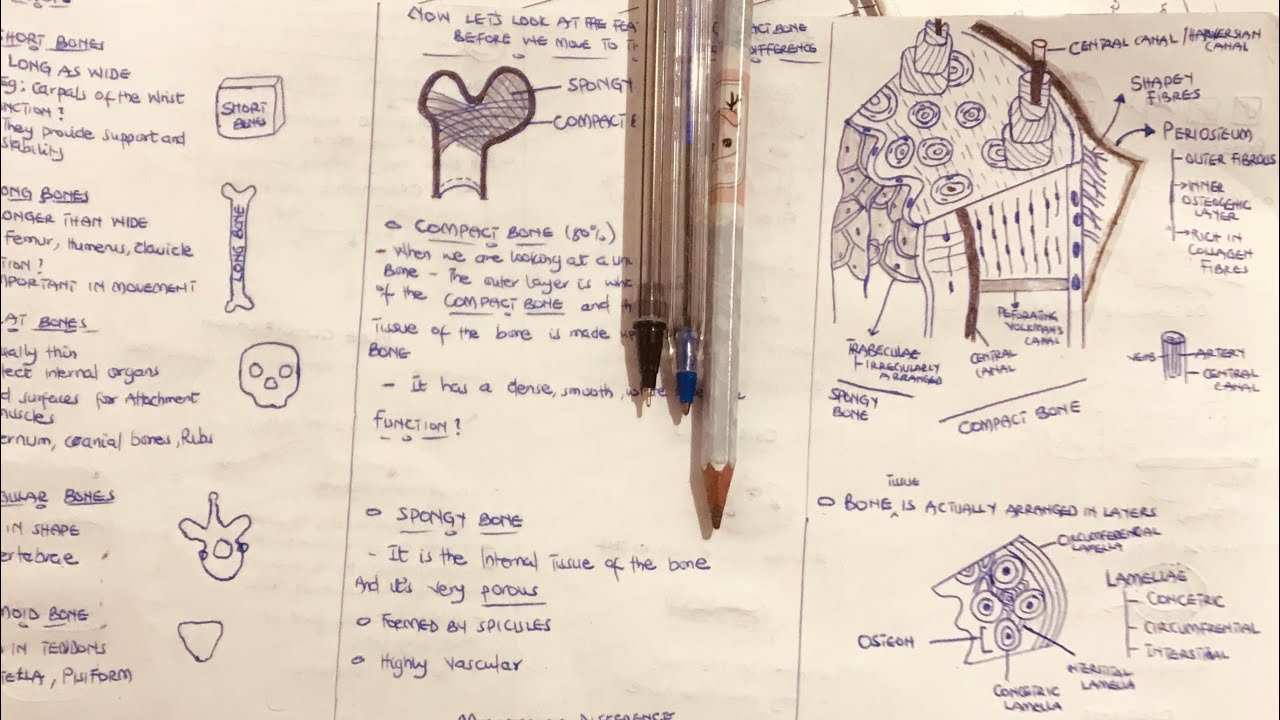 SHORT BONES
LONG AS WIDE
Eg: Carpals of the Wrist
They provide support and
stability
SHORT
BONES
LONGER THAN WIDE
Femur, Humerus, Clavicle
IMPORTANT IN MOVEMENT
LONG BONE
BONES
thin
internal organs
surfaces for Attachment
muscles
cranial bones, Ribs
BONES
IN SHAPE
BONE
IN TENDONS
, PISIFORM
NOW LET'S LOOK AT THE
BEFORE WE MOVE TO
BONE
DIFFERENCE
SPONGY
COMPACT
COMPACT BONE (80%)
- When we are looking at a
Bone - The outer layer is
of the COMPACT BONE and
Tissue of the bone is made
BONE
- It has a dense, smooth,
FUNCTION?
SPONGY BONE
- It is the Internal Tissue of the bone
And it's very porous
FORMED BY SPICULES
Highly Vascular
DIFFERENCE
CENTRAL CANAL/HAVERSIAN
CANAL
SHAPEY
FIBRES
PERIOSTEUM
OUTER FIBROUS
INNER
OSTEOGENIC
LAYER
RICH IN
COLLAGEN
FIBRES
PERFORATING
VOLKMAN'S
CANAL
CENTRAL
CANAL
TRABECULAE
IRREGULARLY
ARRANGED
SPONGY
BONE
COMPACT BONE
VEINS
ARTERY
CENTRAL
CANAL
TISSUE
BONE IS ACTUALLY ARRANGED IN LAYERS
CIRCUMFERENTIAL
LAMELLA
LAMELLAE
CONCETRIC
CIRCUMFRENTIAL
INTERSTIBAL
OSTEON
INTERITIAL
LAMELLA
CONCETRIC
LAMELLA